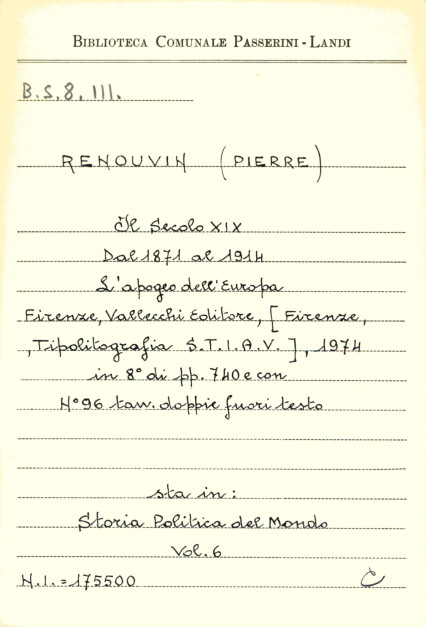 BIBLIOTECA COMUNALE PASSERINI - LANDI
B.S.8.III.
RENOUVIN (PIERRE)
Il Secolo XIX
Dal 1871 al 1914
L'apogeo dell'Europa
Firenze, Vallecchi Editore, [Firenze,
,Tipolitografia S.T.I.A.V.], 1974
in 8° di pp. 740 e con
N°96 tav. doppie fuori testo
sta in:
Storia Politica del Mondo
Vol. 6
N.I.=175500 C